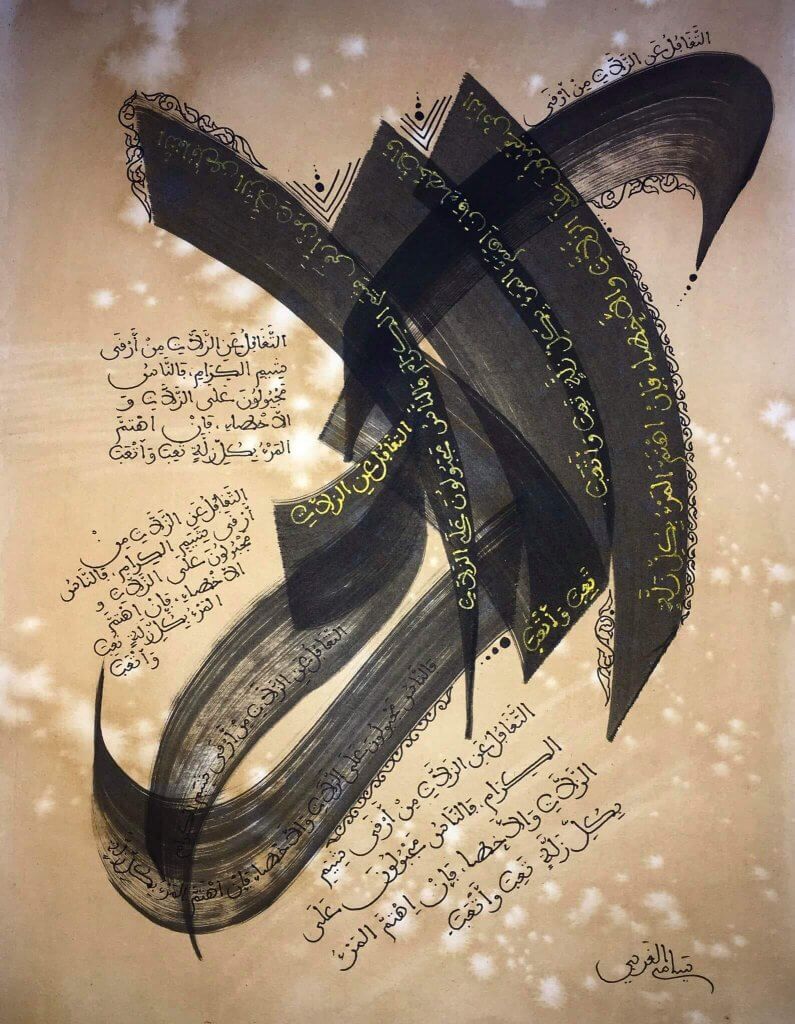 التَّغَافُلُ عَنِ الزَّلَّاتِ مِنْ أَرْقَى
التَّغَافُلُ عَنِ الزَّلَّاتِ مِنْ أَرْقَى شِيَمِ الكِرَامِ فَالنَّاسُ مَجْبُولُونَ عَلَى الزَّلَّاتِ
وَالأَخْطَاءِ فَإِنْ اهْتَمَّ المَرْءُ بِكُلِّ زَلَّةٍ تَعِبَ وَأَتْعَبَ
النَّاسُ مَجْبُولُونَ عَلَى الزَّلَّاتِ وَالأَخْطَاءِ فَإِنْ اهْتَمَّ المَرْءُ بِكُلِّ زَلَّةٍ
تَعِبَ وَأَتْعَبَ
التَّغَافُلُ عَنِ الزَّلَّاتِ
التَّغَافُلُ عَنِ الزَّلَّاتِ مِنْ أَرْقَى
شِيَمِ الكِرَامِ، فَالنَّاسُ
مَجْبُولُونَ عَلَى الزَّلَّاتِ وَ
الأَخْطَاءِ، فَإِنْ اهْتَمَّ
المَرْءُ بِكُلِّ زَلَّةٍ تَعِبَ وَأَتْعَبَ
التَّغَافُلُ عَنِ الزَّلَّاتِ مِنْ
أَرْقَى شِيَمِ الكِرَامِ، فَالنَّاسُ
مَجْبُولُونَ عَلَى الزَّلَّاتِ وَ
الأَخْطَاءِ، فَإِنْ اهْتَمَّ
المَرْءُ بِكُلِّ زَلَّةٍ تَعِبَ
وَأَتْعَبَ
التَّغَافُلُ عَنِ الزَّلَّاتِ مِنْ أَرْقَى شِيَمِ الكِرَامِ
فَالنَّاسُ مَجْبُولُونَ عَلَى الزَّلَّاتِ وَالأَخْطَاءِ، فَإِنْ اهْتَمَّ المَرْءُ بِكُلِّ زَلَّةٍ
التَّغَافُلُ عَنِ الزَّلَّاتِ مِنْ أَرْقَى شِيَمِ
الكِرَامِ، فَالنَّاسُ مَجْبُولُونَ عَلَى
الزَّلَّاتِ وَالأَخْطَاءِ، فَإِنْ اهْتَمَّ المَرْءُ
بِكُلِّ زَلَّةٍ تَعِبَ وَأَتْعَبَ
سامي الغربي